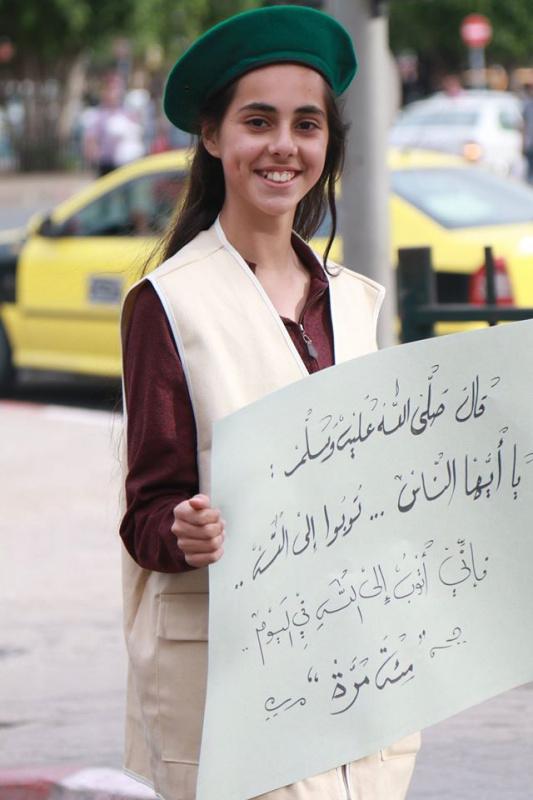 قال صلّى الله عليه وسلّم :
يا أيّها الناس ... توبوا إلى الله ..
فإنّي أتوبُ إلى اللهِ في اليَوم ..
" مِئةَ مَرَّة "